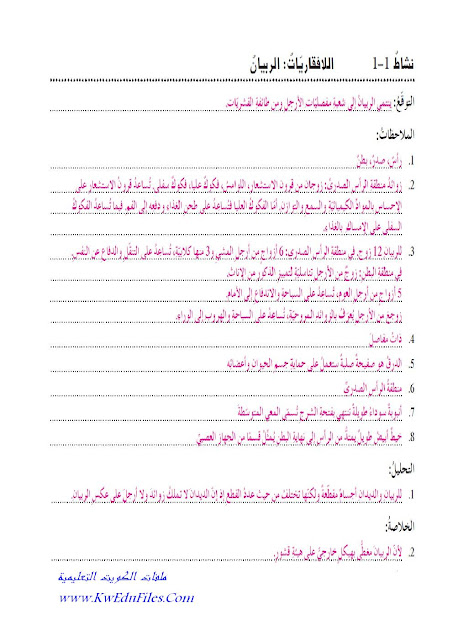 نشاطُ 1-1 اللافقاريّاتُ: الربيانُ
التوقّعُ: ينتمي الربيانُ إلى شعبة مفصليّات الأرجل ومن طائفة القشريّات.
الملاحظاتُ:
1. رأسٌ، صدرٌ، بطنٌ
2. زوائدُ منطقة الرأس الصدريّ: زوجان من قرون الاستشعار، اللوامسُ، فكوكٌ عليا، فكوكٌ سفلى. تُساعدُ قرونُ الاستشعار على
الإحساس بالموادّ الكيميائيّة والسمع والتوازن. أمّا الفكوكُ العليا فتُساعدُ على طحن الغذاء ودفعه إلى الفم فيما تُساعدُ الفكوكُ
السفلى على الإمساك بالغذاء.
3. للربيان 12 زوج. في منطقة الرأس الصدري: 6 أزواج من أرجل المشي و3 منها كلابيّة، تُساعدُ على التنقّل والدفاع عن النفس
في منطقة البطن: زوجٌ من الأرجل تناسليّة لتمييز الذكور من الإناث.
5 أزواج من أرجل العوم، تُساعدُ على السباحة والاندفاع إلى الأمام.
زوجٌ من الأرجل يُعرفُ بالزوائد المروحيّة، تُساعدُ على السباحة والهروب إلى الوراء.
4. ذاتُ مفاصلَ
5. الدرقُ هو صفيحةٌ صلبةٌ تستعملُ على حماية جسم الحيوان وأعضائه
6. منطقةُ الرأس الصدريّ
7. أنبوبةٌ سوداءُ طويلةٌ تنتهي بفتحة الشرج تُسمّى المعي المتوسّطة
8. خيطٌ أبيضُ طويلٌ يمتدُّ من الرأس إلى نهاية البطن يُمثّلُ قسمًا من الجهاز العصبيّ
التحليلُ:
1. للربيان والديدان أجسامٌ مقطّعةٌ ولكنّها تختلفُ من حيثُ عددُ القطع إذ إنّ الديدان لا تملكُ زوائدَ ولا أرجلَ على عكس الربيان.
الخلاصةُ:
2. لأنّ الربيانَ مغطًّى بهيكلٍ خارجيٍّ على هيئة قشور.
ملفات الكويت التعليمية
www.KwEduFiles.Com